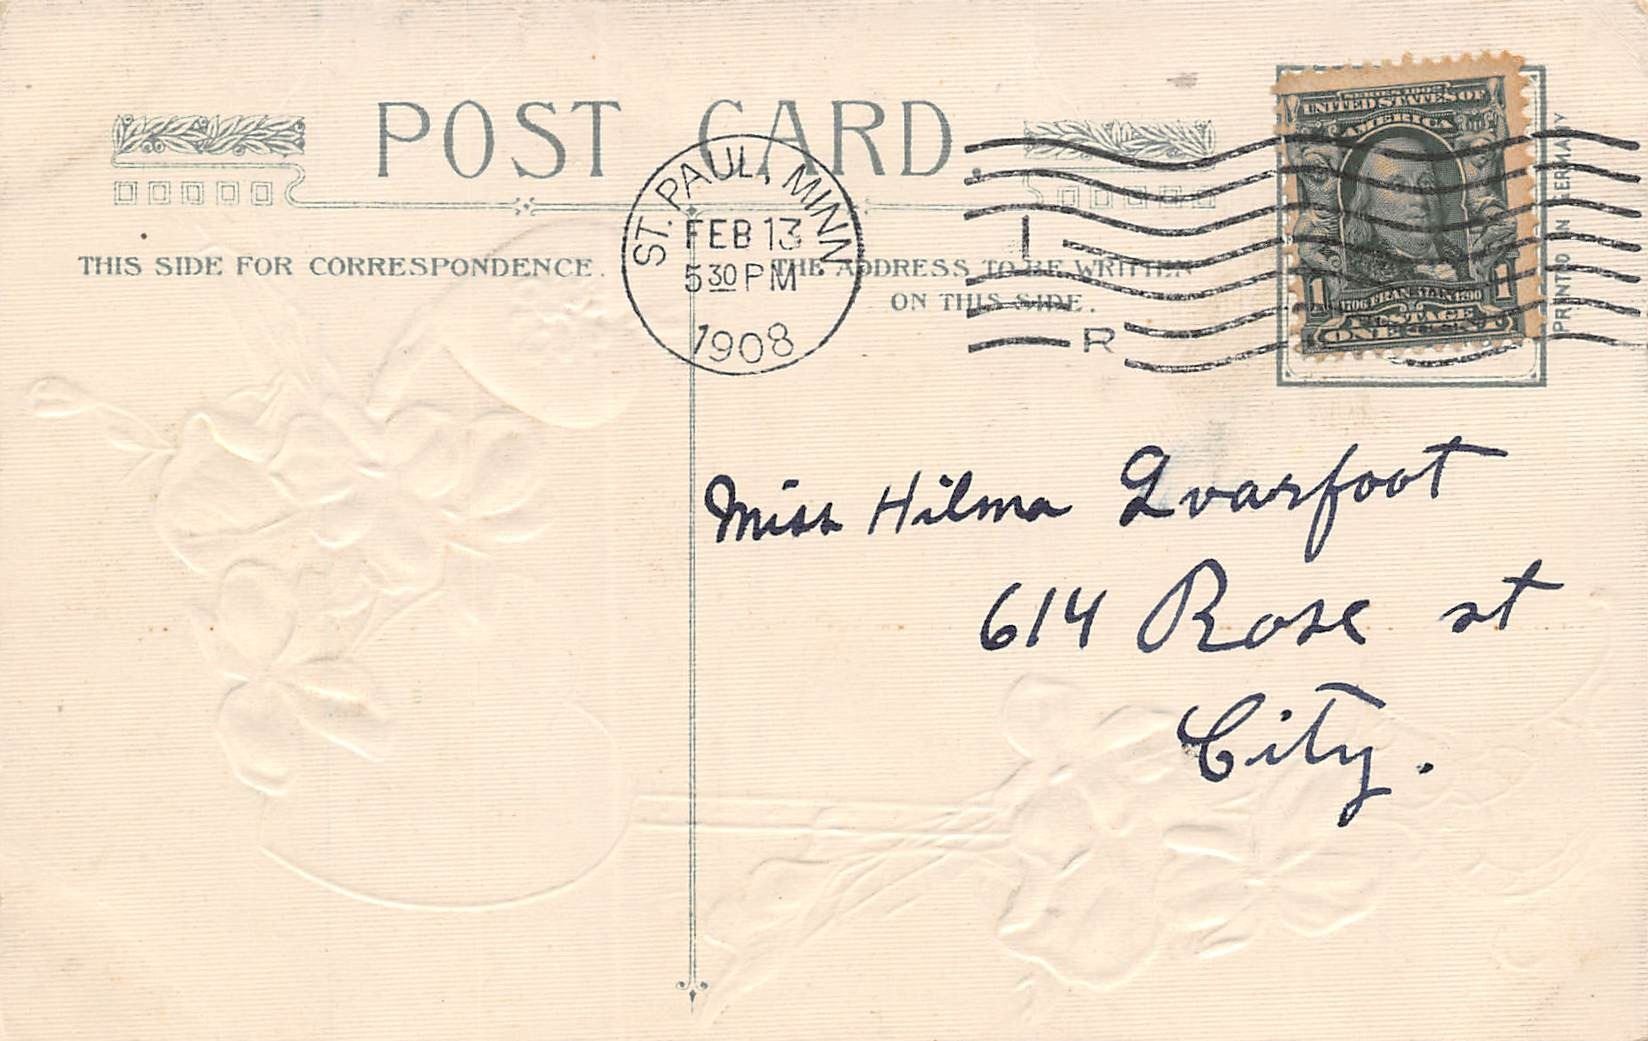 POST CARD.
THIS SIDE FOR CORRESPONDENCE.
THE ADDRESS TO BE WRITTEN
ON THIS SIDE.
ST. PAUL, MINN
FEB 13
5 30 PM
1908
1
R
SERIES 1902
UNITED STATES OF
AMERICA
1706 FRANKLIN 1790
1 1
POSTAGE
ONE CENT
PRINTED IN GERMANY
Miss Hilma Qvarfoot
614 Rose st
City.